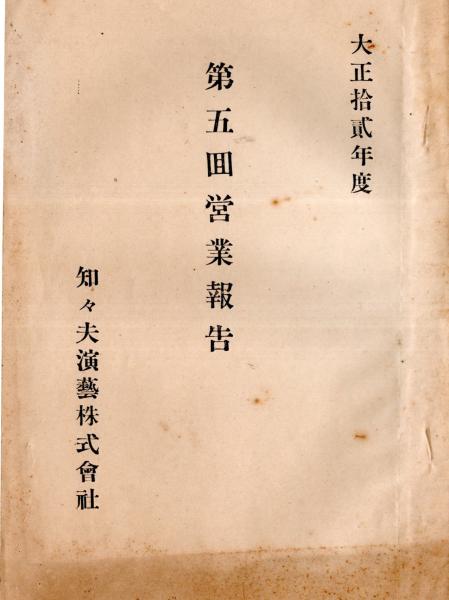 大正拾貳年度
第五回営業報告
知々夫演藝株式會社